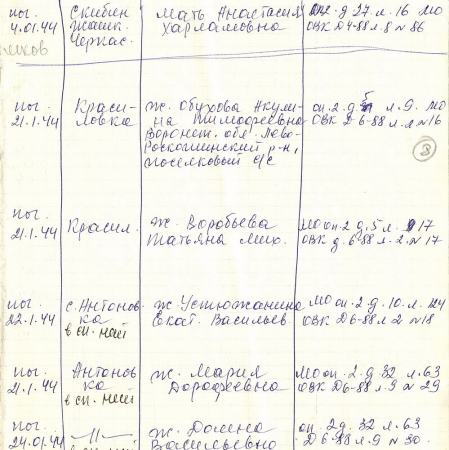 пог. Скибин Мать Анастасия оп. 2 д. 27 л. 16 МО
4.01.44 Жашк. Харламовна ОВК Д 4-88 л. 8 № 86
Черкас.
пог. Краси- ж. Обухова Акули- оп. 2 д. 5 л. 9. МО
21.1.44 ловка на Тимофеевна ОВК Д 6-88 л. 2 № 16
Воронеж. обл. Лево-
Россошинский р-н,
поселковый с/с
3
пог. Красил. ж. Воробьева МО оп. 2 д. 5 л. 17
21.1.44 Татьяна Мих. ОВК д. 6-88 л. 2. № 17
пог. с. Антонов- ж. Устюжанина МО оп. 2 д. 10 л. 124
22.1.44 ка Екат. Васильев ОВК Д 6-88 л. 2 № 18
в сп. нет
пог. Антонов ж. Мария МО оп. 2 д. 32 л. 63
21.1.44 ка Дорофеевна ОВК Д 6-88 л. 9 № 29
в сп. нет
пог. —//— ж. оп. 2 д. 32 л. 63
24.01.44 Васильевна Д 6-88 л. 9 № 30.